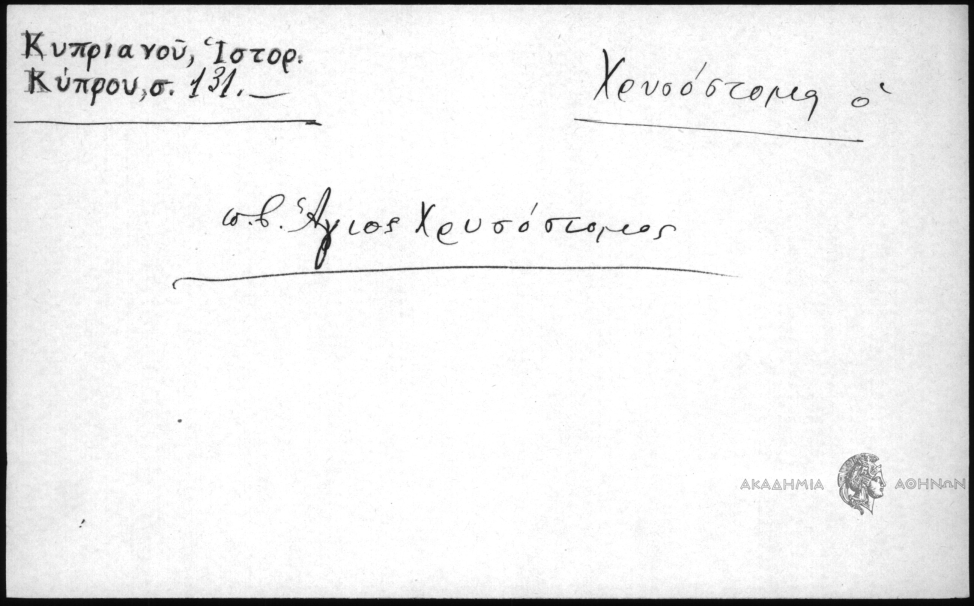 Κυπριανοῦ, Ἱστορ.
Κύπρου, σ. 131.—
Χρυσόστομος ὁ
π.β. Ἅγιος Χρυσόστομος
ΑΚΑΔΗΜΙΑ ΑΘΗΝΩΝ